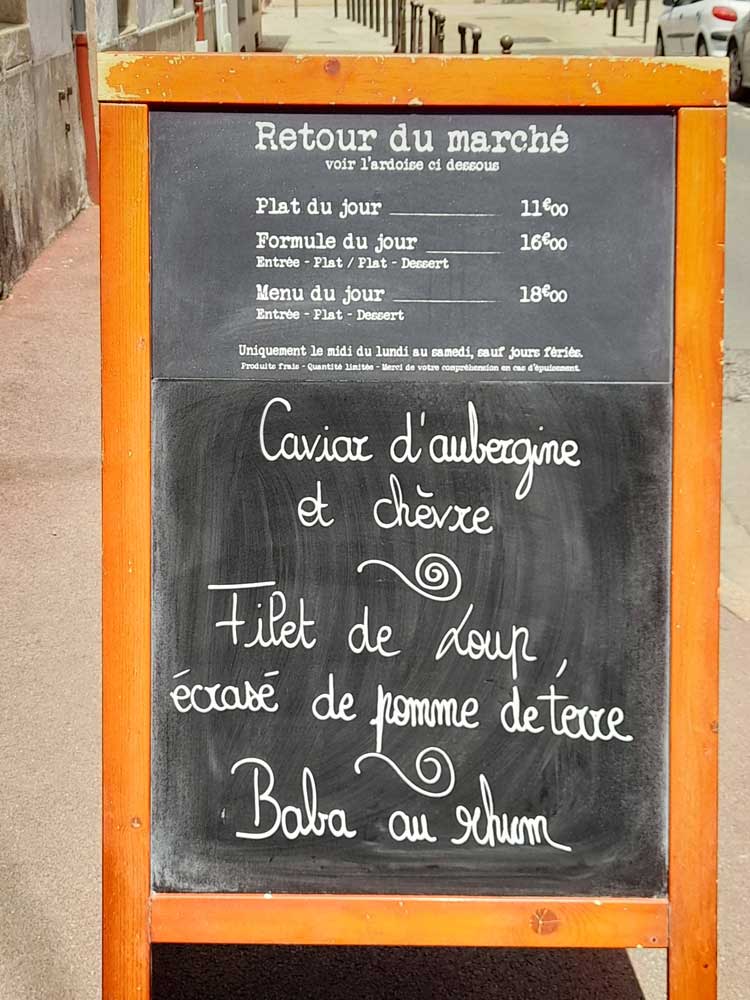 Retour du marché
voir l'ardoise ci dessous
Plat du jour 11€00
Formule du jour 16€00
Entrée - Plat / Plat - Dessert
Menu du jour 18€00
Entrée - Plat - Dessert
Uniquement le midi du lundi au samedi, sauf jours fériés.
Produits frais - Quantité limitée - Merci de votre compréhension en cas d'épuisement.
Caviar d'aubergine
et chèvre
Filet de Loup,
écrasé de pomme de terre
Baba au rhum